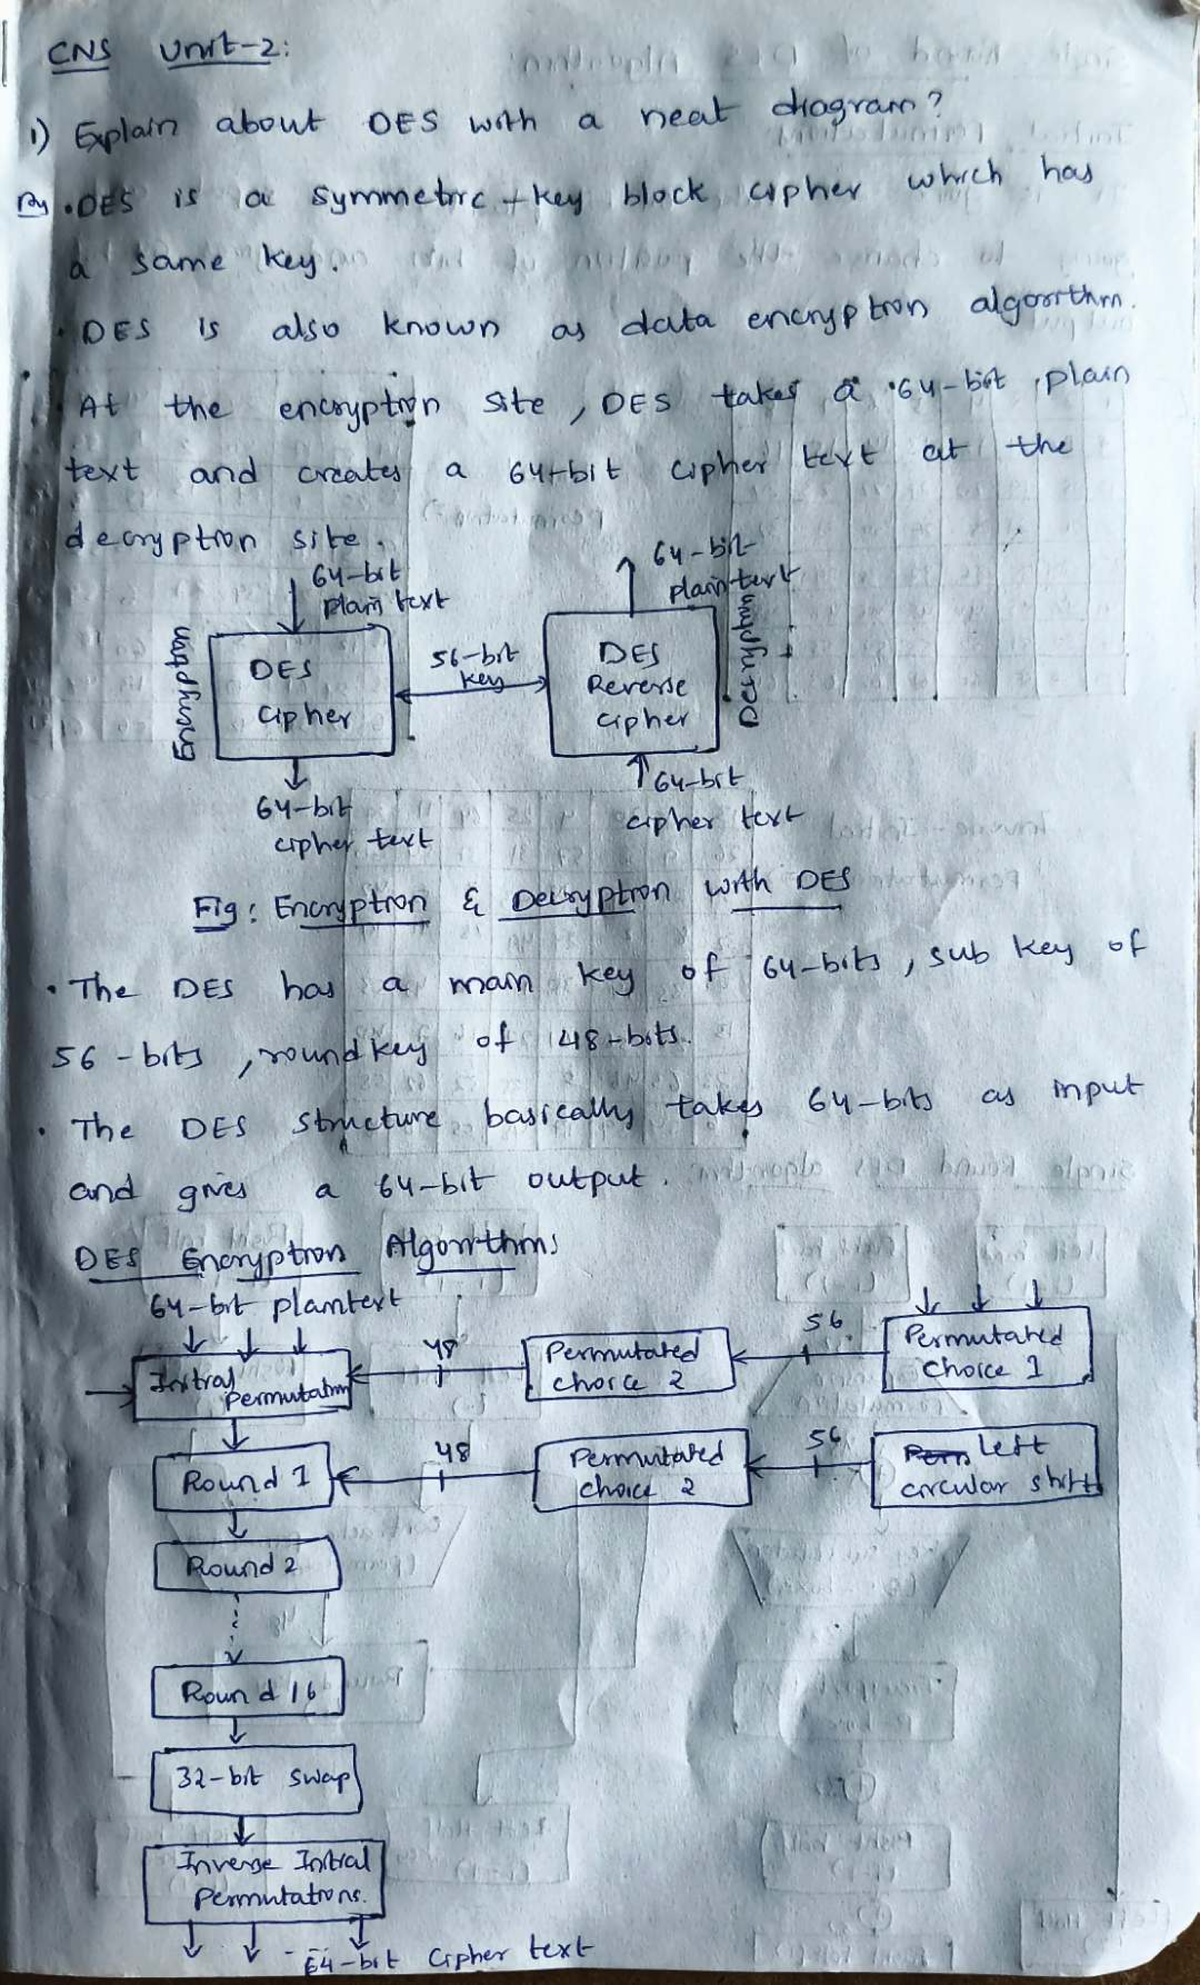 CNS Unit-2:
1) Explain about DES with a neat diagram?
• DES is a symmetric-key block cipher which has
a same key.
• DES is also known as data encryption algorithm.
• At the encryption site, DES takes a 64-bit plain
text and creates a 64-bit cipher text at the
decryption site.
64-bit
plain text
64-bit
plain text
Encryption
DES
cipher
56-bit
key
DES
Reverse
cipher
Decryption
64-bit
cipher text
64-bit
cipher text
Fig: Encryption & Decryption with DES
• The DES has a main key of 64-bits, sub key of
56-bits, round key of 48-bits.
• The DES structure basically takes 64-bits as input
and gives a 64-bit output.
DES Encryption Algorithm:
64-bit plaintext
Initial
Permutation
48
Permutated
choice 2
56
Permutated
Choice 1
Round 1
48
Permutated
choice 2
56
left
circular shift
Round 2
Round 16
32-bit swap
Inverse Initial
Permutations.
64-bit Cipher text